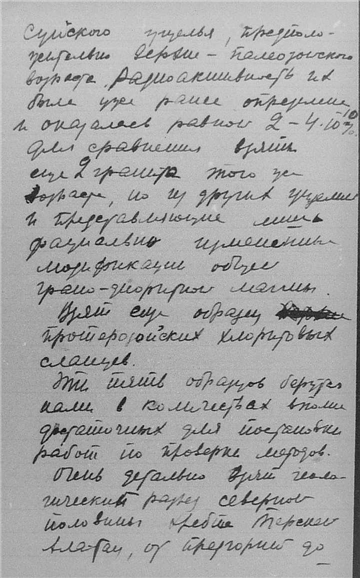 суйского ущелья, предполо-
жительно верхне-палеозойского
возраста. Радиоактивность их
была уже ранее определена
и оказалась равной 2-4·10⁻¹⁰%.
для сравнения взяты
еще 2 гранита этого же
возраста, но из других ущелий
и представляющие лишь
фациально измененные
модификации общей
грано-диоритной магмы.
Взят еще образец
протерозойских хлоритовых
сланцев.
Эти пять образцов берутся
нами в количествах вполне
достаточных для постановки
работ по проверке методов.
Очень детально взят геоло-
гический разрез северной
половины хребта Терскей
Алатау, от предгорий до